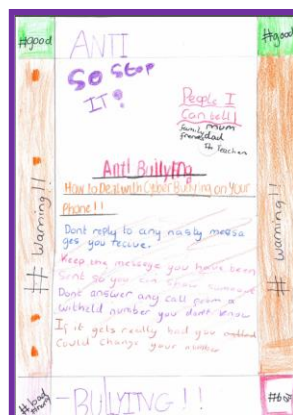 #good
ANTI
#good
SO STOP
IT?
People I
Can tell
family mum
friends dad
Teacher
Anti Bullying
How to Deal with Cyber Bullying on Your
Phone!!
Dont reply to any nasty messa
ges you recive.
Keep the message you have been
sent so you can show someone
Dont answer any call from a
witheld number you dont know
If it gets really bad you
Could change your number
# Warning!!
# Warning!!
#bad
-BULLYING!!